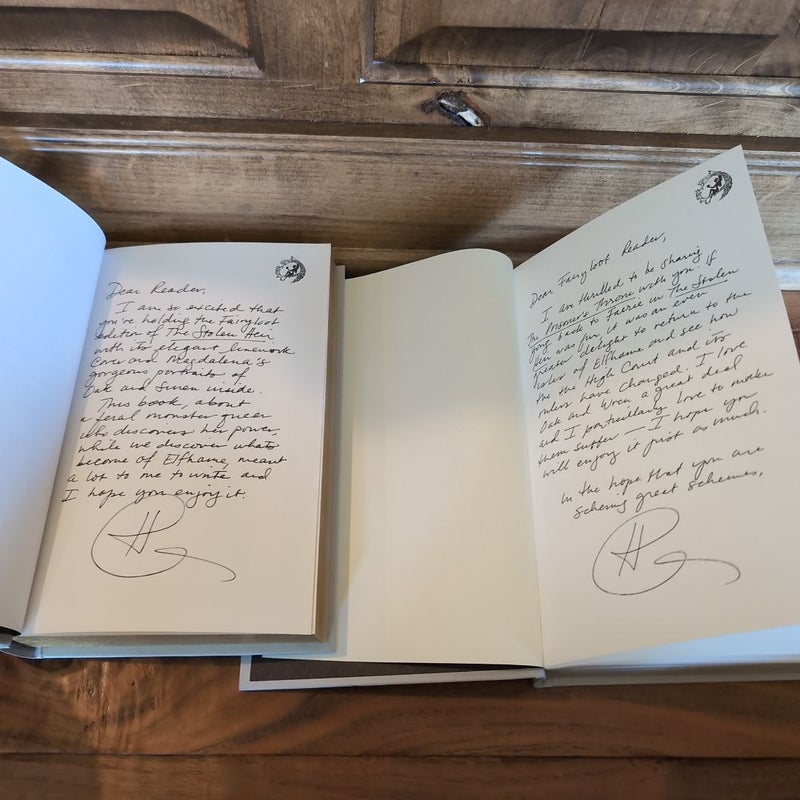 Dear Reader,
I am so excited that
you're holding the Fairyloot
edition of The Stolen Heir
with its elegant linework
cover and Magdalena's
gorgeous portraits of
Oak and Suren inside.
This book, about
a feral monster queen
who discovers her power,
while we discover whats
become of Elfhame, meant
a lot to me to write and
I hope you enjoy it.
Dear Fairyloot Reader,
I am thrilled to be sharing
The Prisoner's Throne with you. If
going back to Faerie in The Stolen
Heir was fun, it was an even
greater delight to return to the
Isles of Elfhame and see how
the the High Court and its
rulers have changed. I love
Oak and Wren a great deal
and I particularly love to make
them suffer — I hope you
will enjoy it just as much.
In the hope that you are
scheming great schemes,